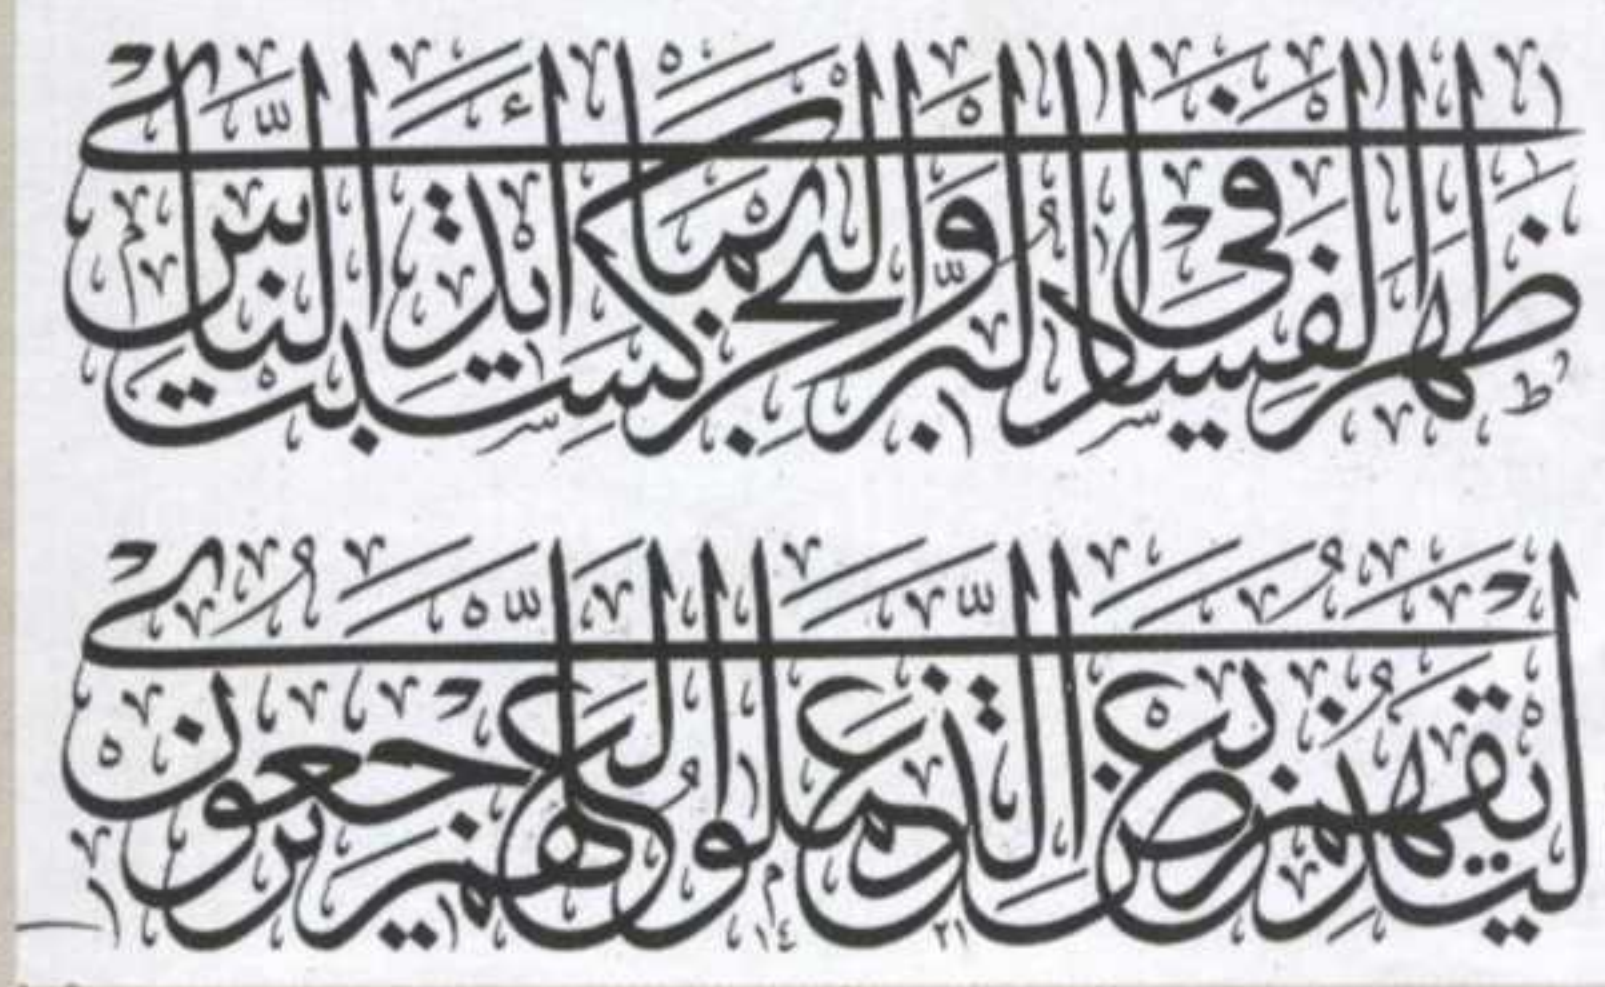 ظَهَرَ الْفَسَادُ فِي الْبَرِّ وَالْبَحْرِ بِمَا كَسَبَتْ أَيْدِي النَّاسِ
لِيُذِيقَهُمْ بَعْضَ الَّذِي عَمِلُوا لَعَلَّهُمْ يَرْجِعُونَ